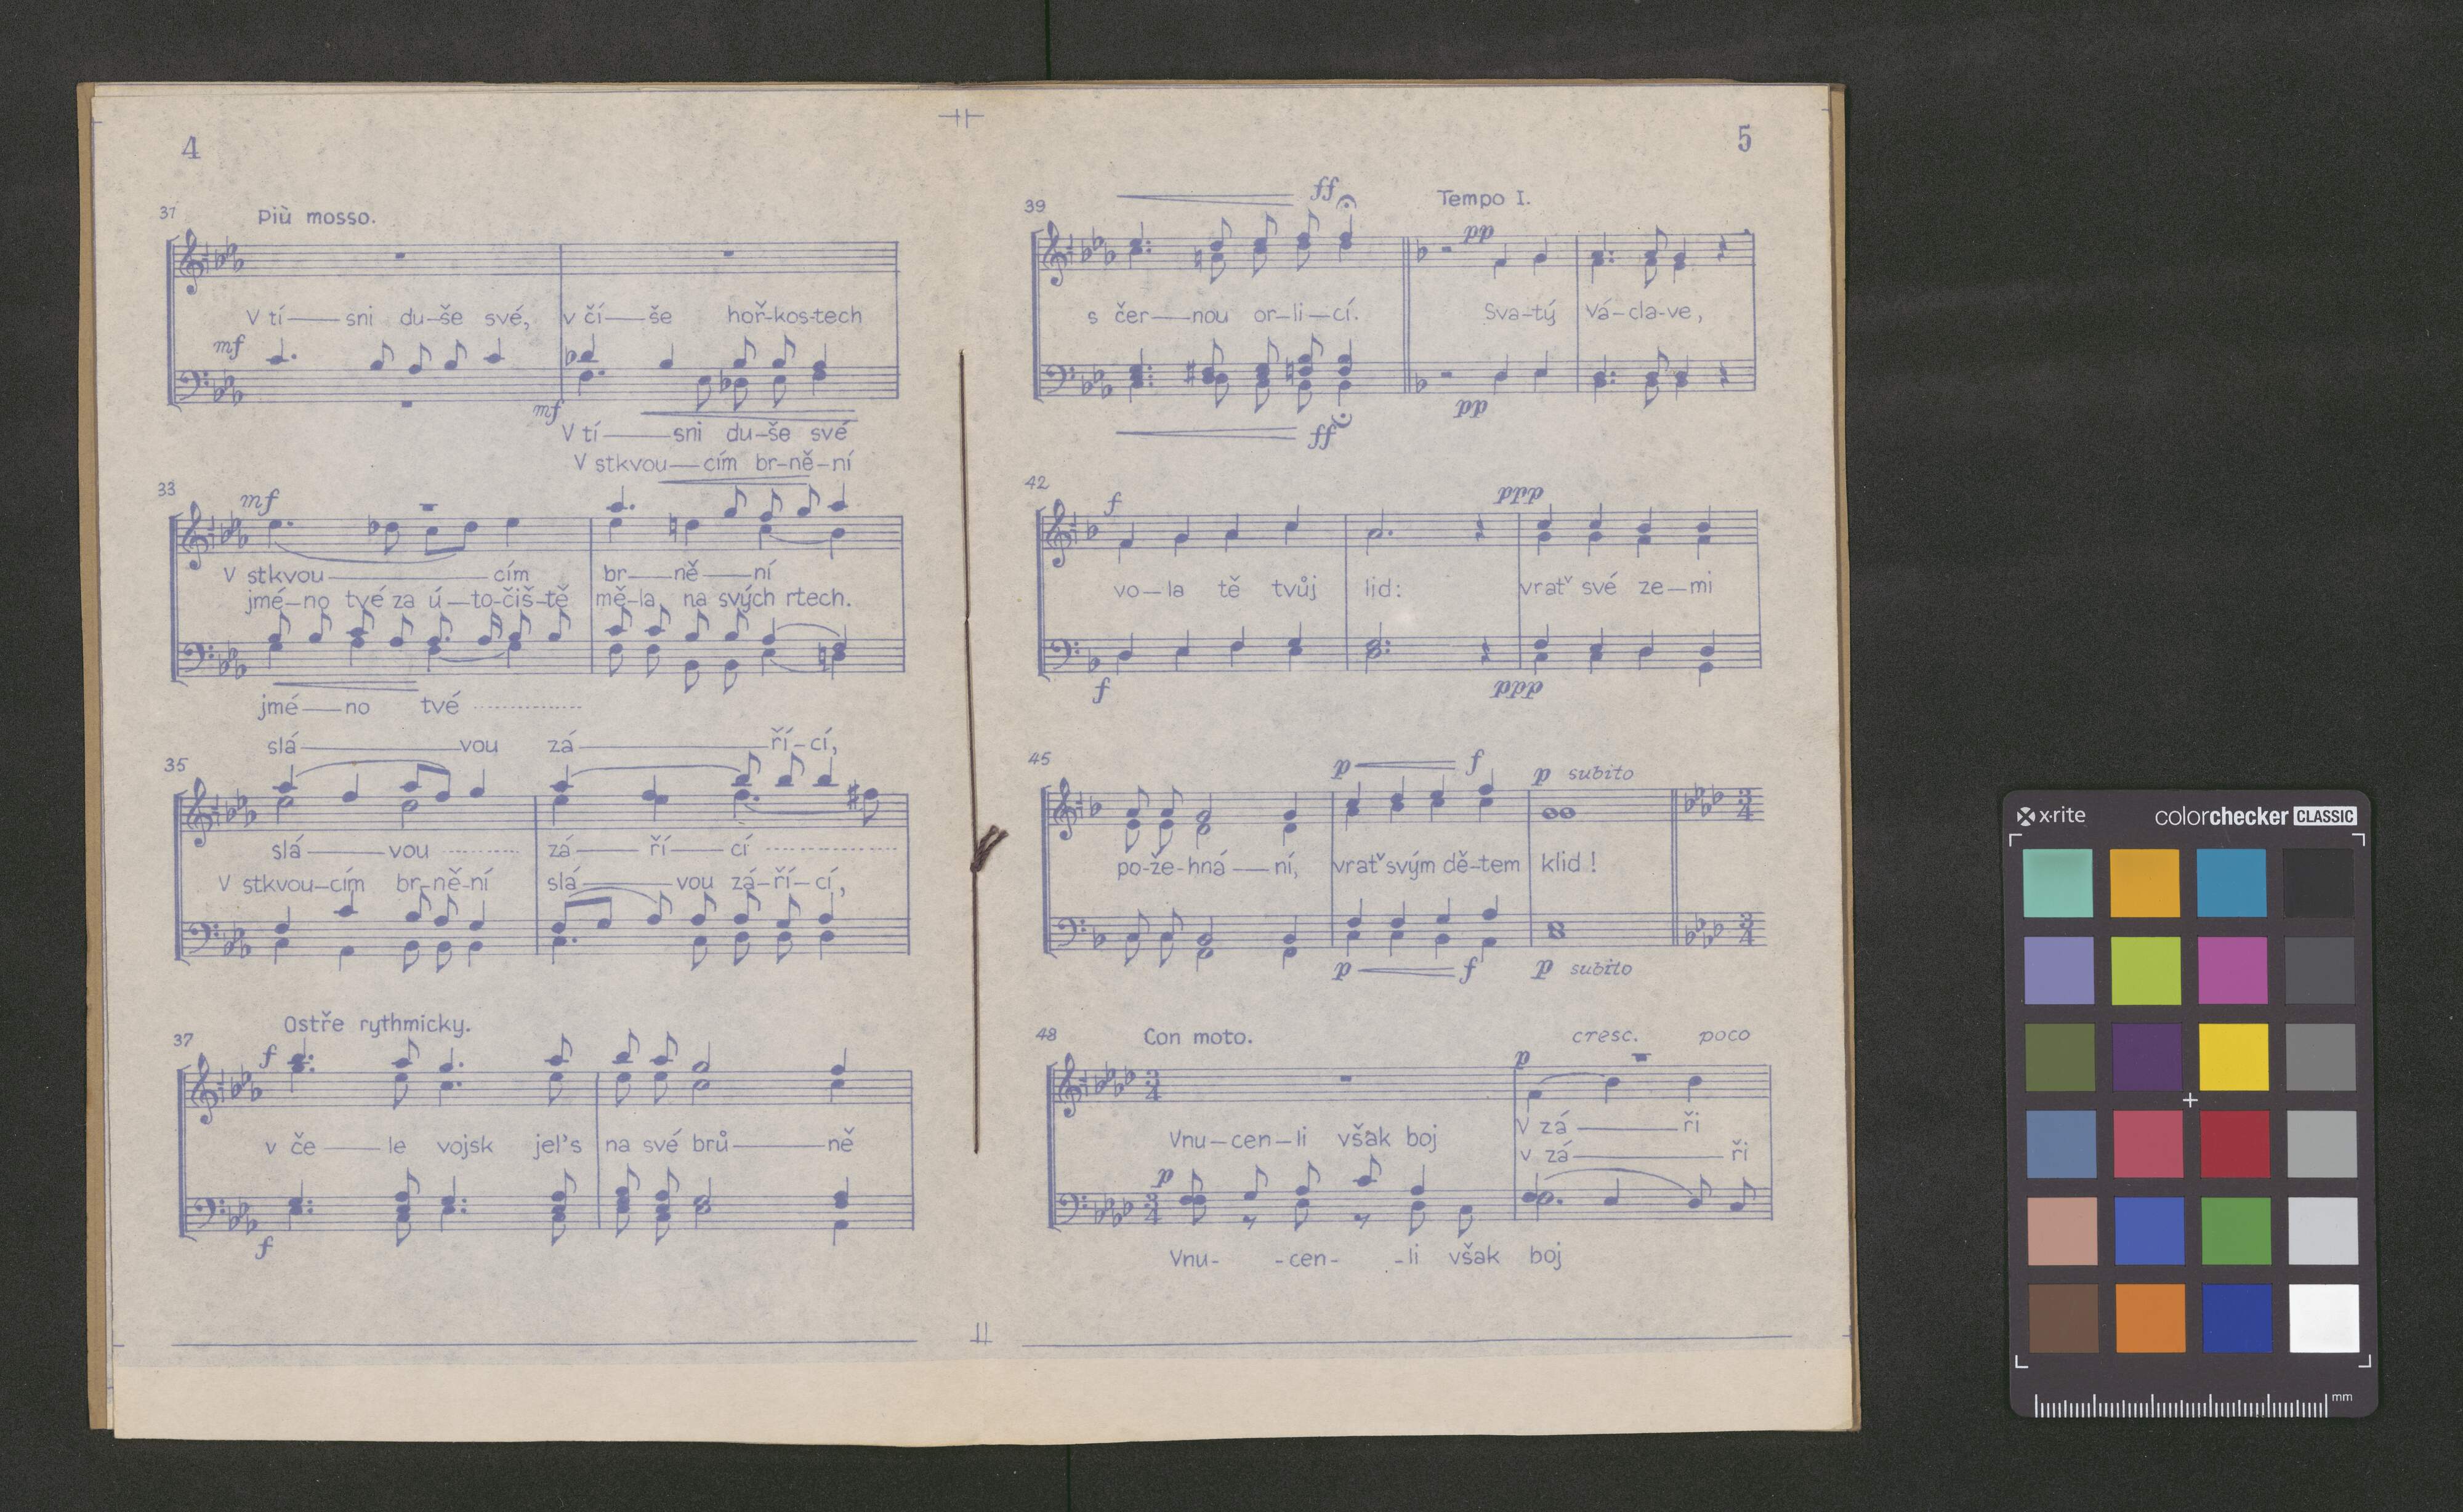 4
31 Più mosso.
V tí——sni du–še své, v čí——še hoř-kos-tech
mf
mf
V tí——sni du–še své
V stkvou——cím br–ně–ní
33 mf
V stkvou————cím br——ně——ní
jmé–no tvé za ú–to-čiš-tě mě-la na svých rtech.
jmé——no tvé ............
slá————vou zá————ří–cí,
35
slá——vou ........ zá——ří——cí ............
V stkvou–cím br–ně-ní slá——vou zá–ří–cí,
37 Ostře rythmicky.
f
v če——le vojsk jel's na své brů——ně
f
5
39 ff Tempo I.
pp
s čer——nou or–li–cí. Sva–tý Vá–cla–ve,
pp
ff
42 f ppp
vo–la tě tvůj lid: vrať své ze–mi
f ppp
45 p f p subito
po-že-hná——ní, vrať svým dě–tem klid !
p f p subito
48 Con moto. cresc. poco
p
3 4
Vnu–cen–li však boj V zá——ří
v zá————ří
p
3 4
Vnu- -cen- -li však boj
x·rite colorchecker CLASSIC
mm